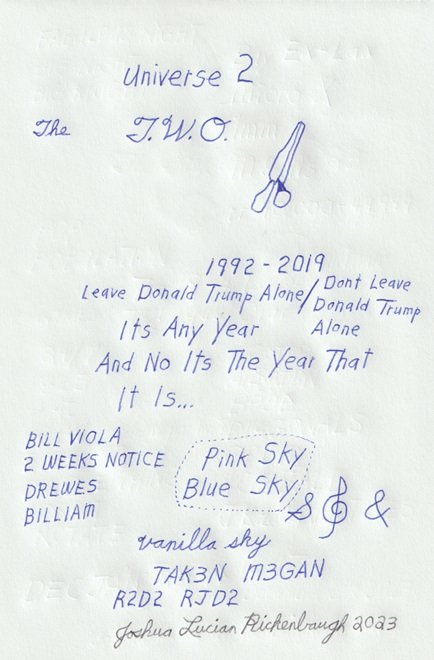 Universe 2
The T.W.O.
1992-2019
Leave Donald Trump Alone/Dont Leave
Donald Trump
Alone
Its Any Year
And No Its The Year That
It Is...
BILL VIOLA
2 WEEKS NOTICE
DREWES
BILLIAM
Pink Sky
Blue Sky
S &
vanilla sky
TAK3N M3GAN
R2D2 RJD2
Joshua Lucian Richenbaugh 2023